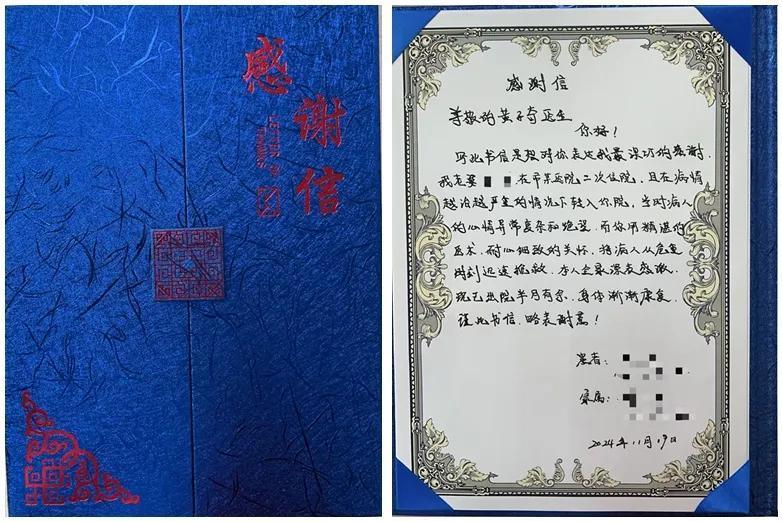 感谢信
LETTER OF THANKS
感谢信
尊敬的黄子奇医生
你好!
写此书信是想对你表达我最深切的感谢.
我老婆 在市某医院二次住院,且在病情
越治越严重的情况下转入你院,当时病人
的心情异常复杂和绝望,而你用精湛的
医术,耐心细致的关怀,将病人从危重
时刻迅速抢救,本人全家深表感激.
现已出院半月有余,身体渐渐康复,
谨此书信,略表谢意!
患者:
家属:
2024年11月19日